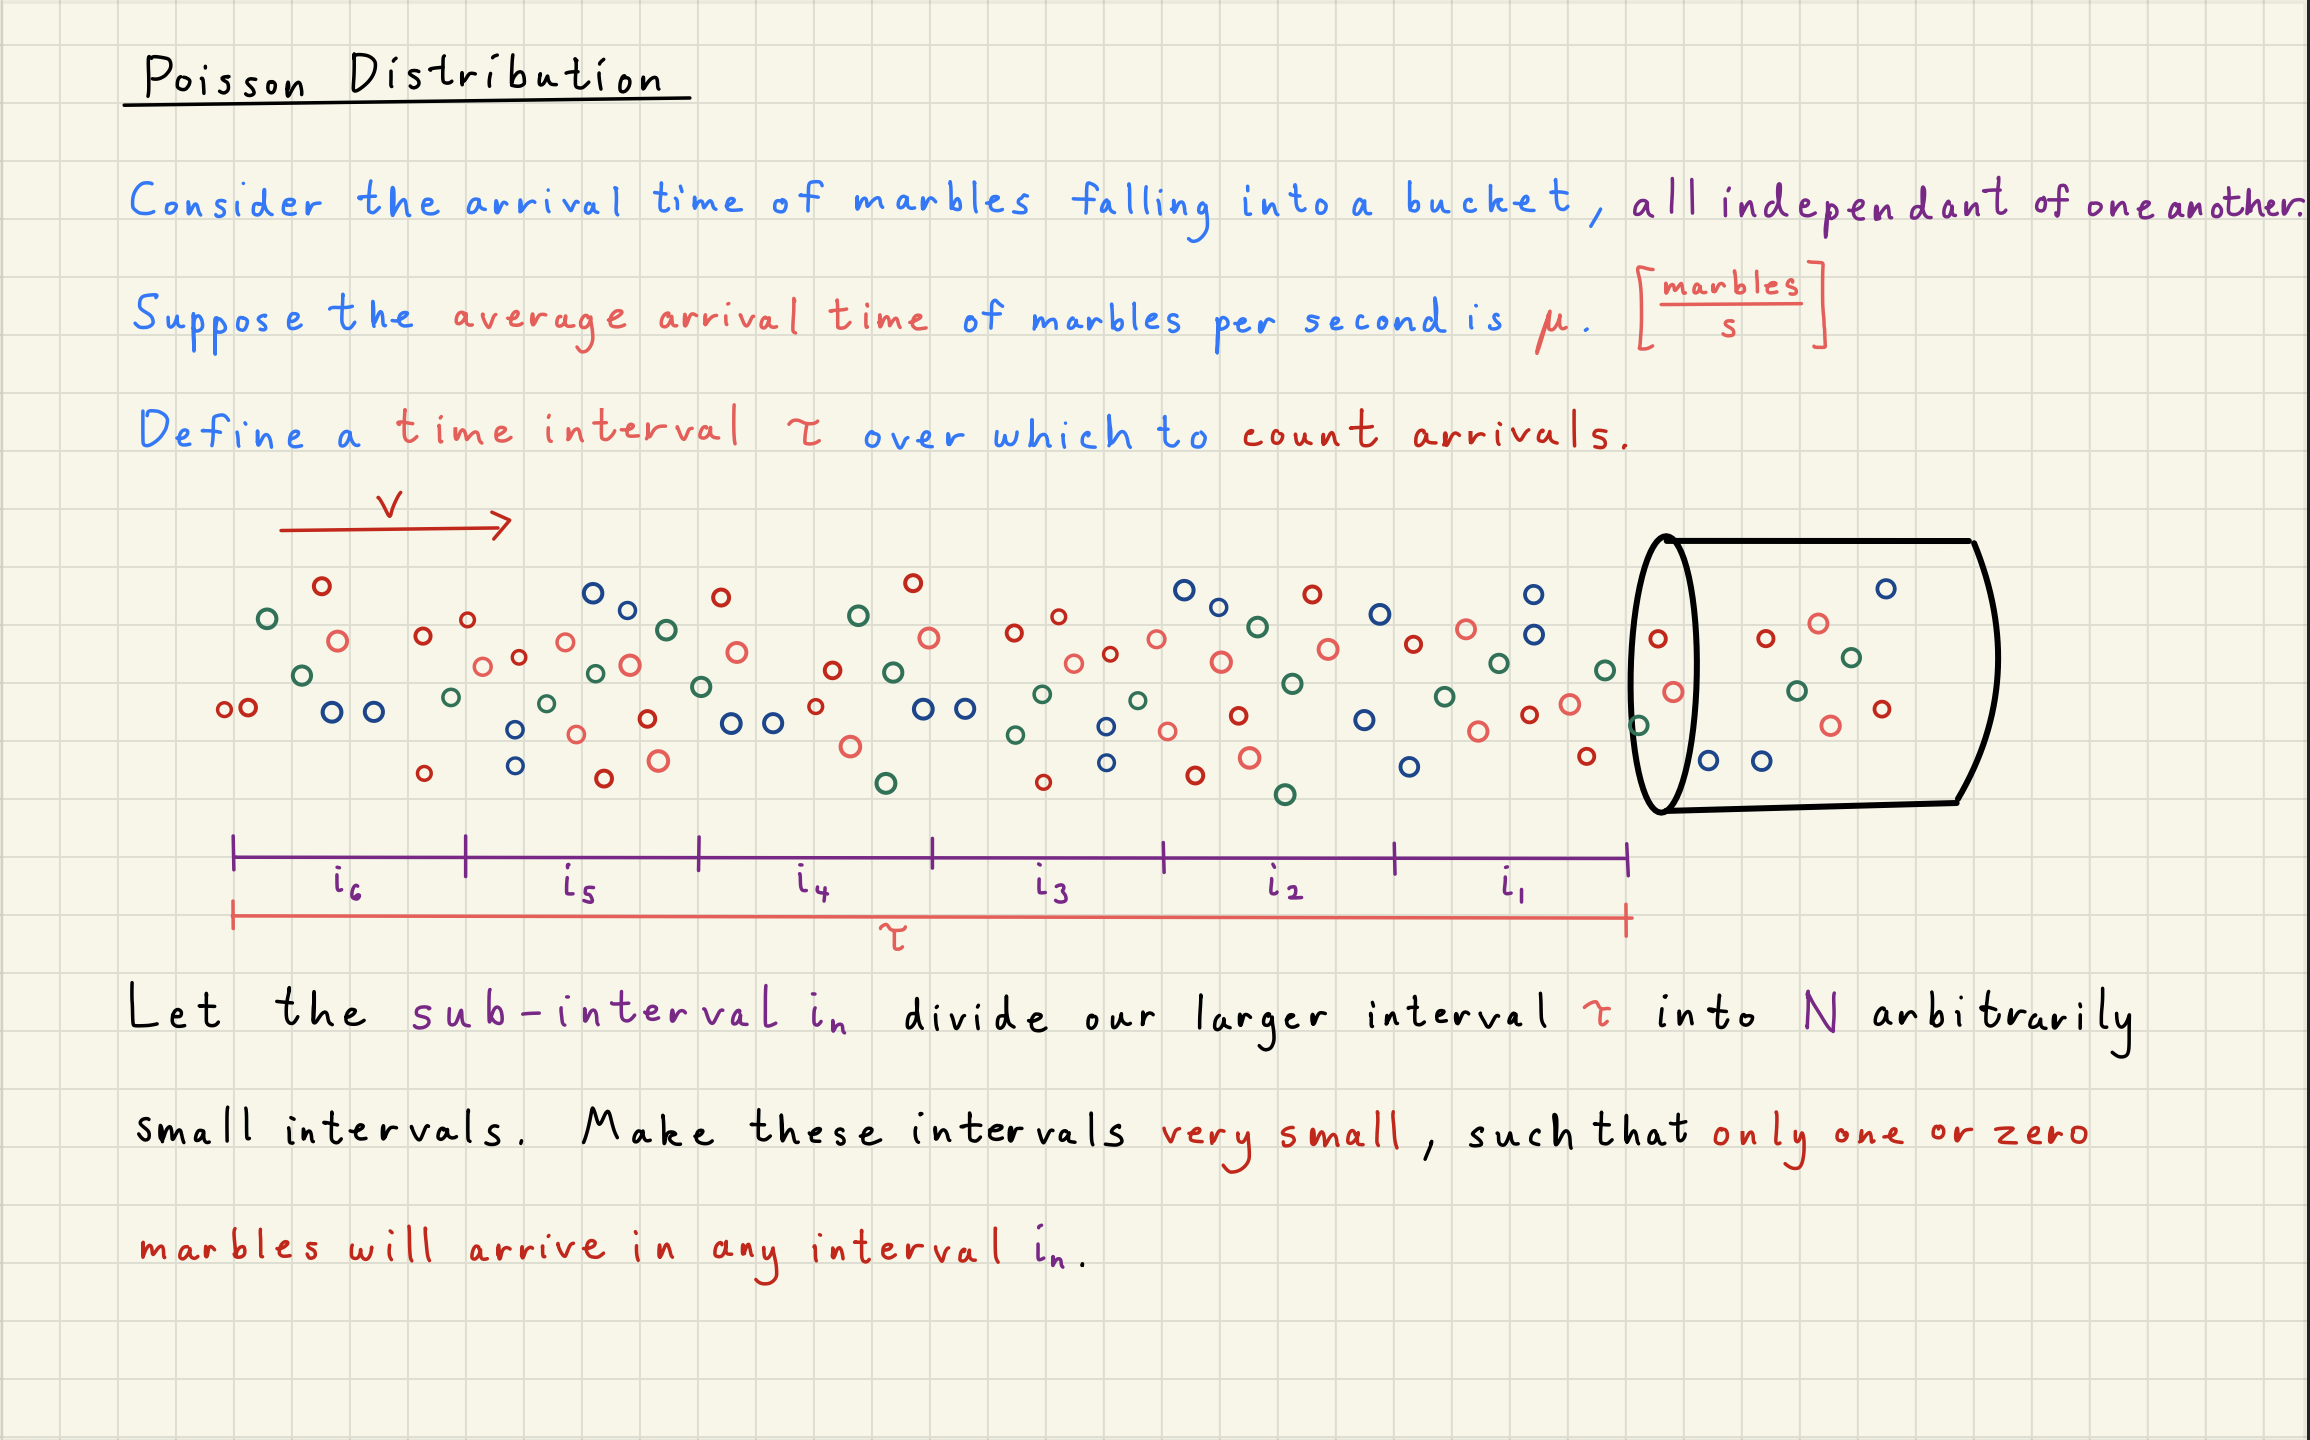 Poisson Distribution
Consider the arrival time of marbles falling into a bucket, all independant of one another.
Suppose the average arrival time of marbles per second is μ. [marbles/s]
Define a time interval τ over which to count arrivals.
v
i₆ i₅ i₄ i₃ i₂ i₁
τ
Let the sub-interval iₙ divide our larger interval τ into N arbitrarily
small intervals. Make these intervals very small, such that only one or zero
marbles will arrive in any interval iₙ.